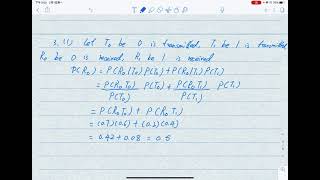 3. (1) Let T₀ be 0 is transmitted, T₁ be 1 is transmitted
R₀ be 0 is received, R₁ be 1 is received
P(R₀) = P(R₀|T₀) P(T₀) + P(R₀|T₁) P(T₁)
= P(R₀T₀)/P(T₀) P(T₀) + P(R₀T₁)/P(T₁) P(T₁)
= P(R₀T₀) + P(R₀T₁)
= (0.7)(0.6) + (0.2)(0.4)
= 0.42 + 0.08 = 0.5